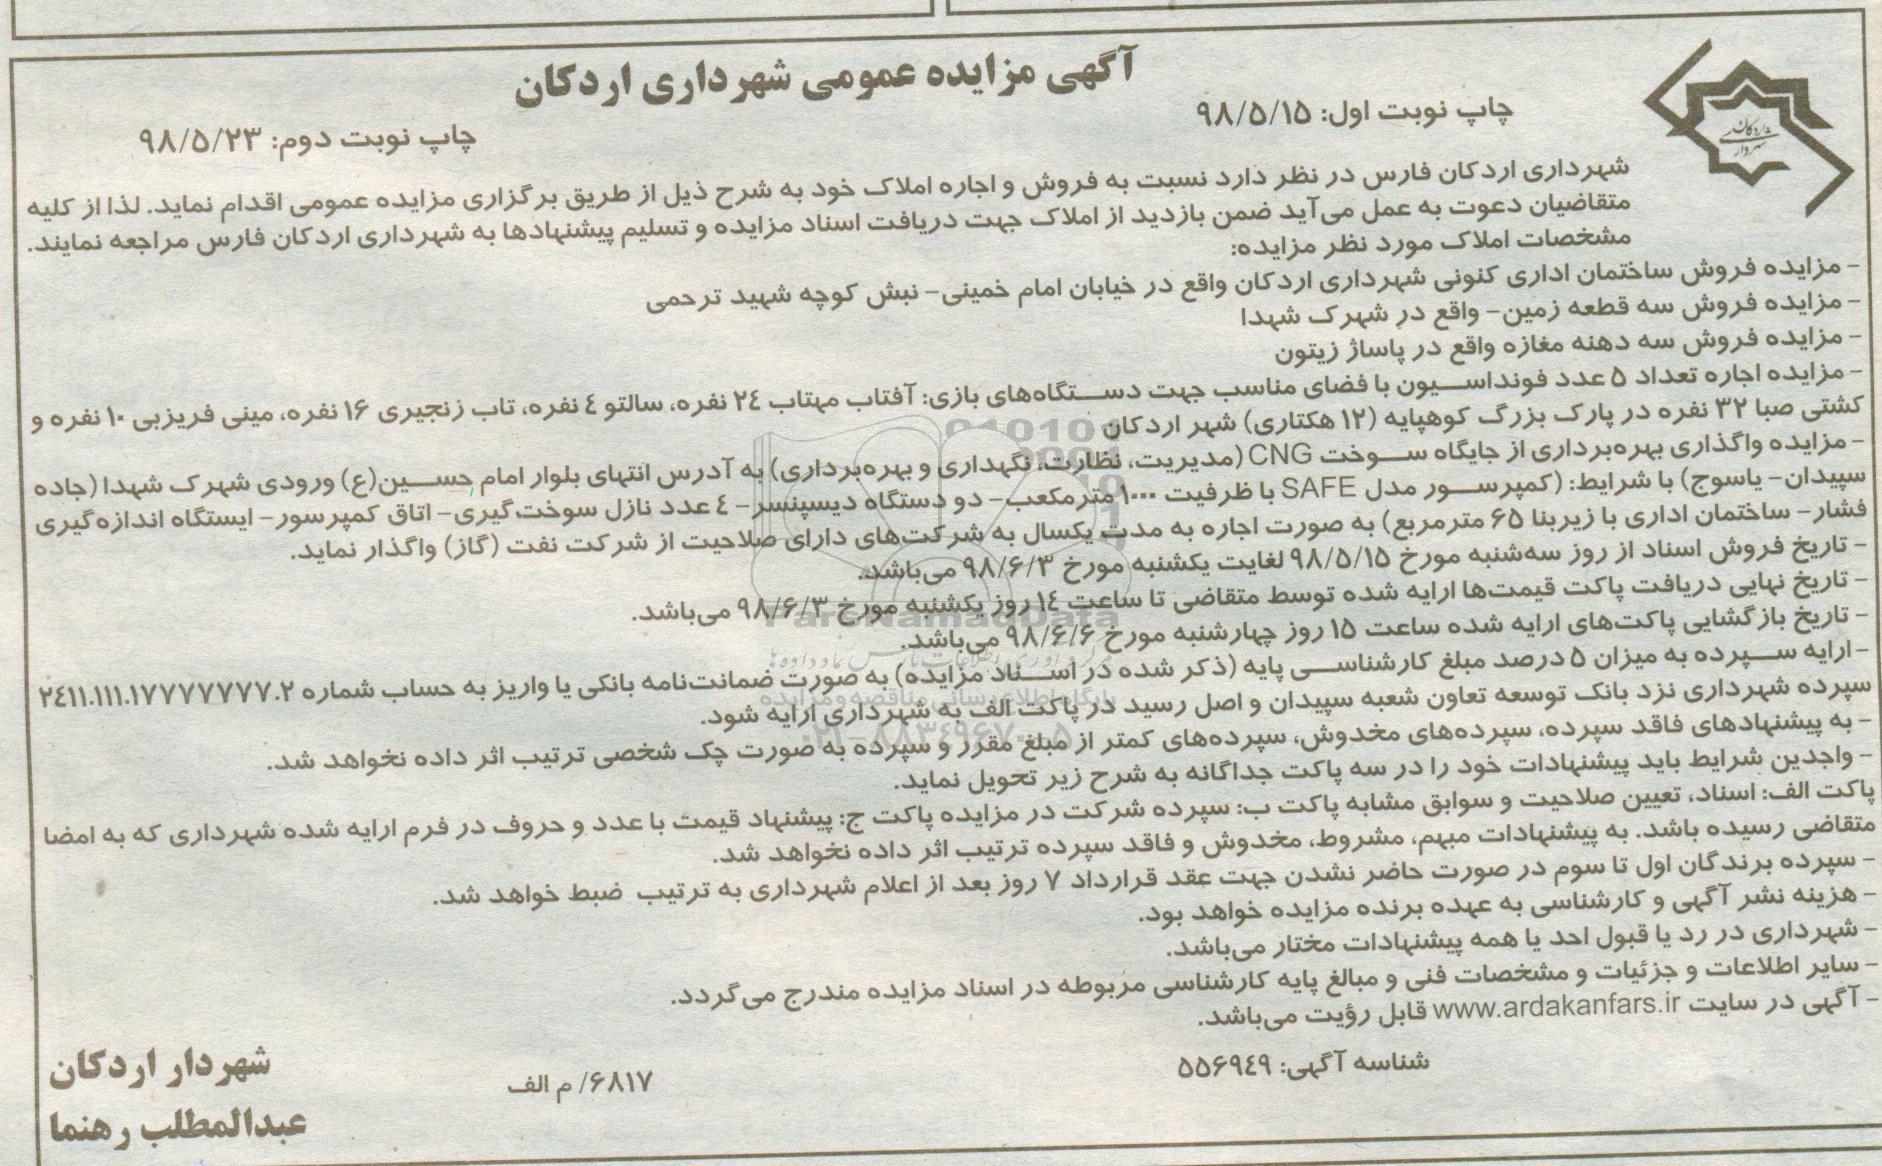 آگهی مزایده عمومی شهرداری اردکان
چاپ نوبت اول: ۹۸/۵/۱۵
چاپ نوبت دوم: ۹۸/۵/۲۳
شهرداری اردکان فارس در نظر دارد نسبت به فروش و اجاره املاک خود به شرح ذیل از طریق برگزاری مزایده عمومی اقدام نماید. لذا از کلیه
متقاضیان دعوت به عمل می‌آید ضمن بازدید از املاک جهت دریافت اسناد مزایده و تسلیم پیشنهادها به شهرداری اردکان فارس مراجعه نمایند.
مشخصات املاک مورد نظر مزایده:
- مزایده فروش ساختمان اداری کنونی شهرداری اردکان واقع در خیابان امام خمینی- نبش کوچه شهید ترحمی
- مزایده فروش سه قطعه زمین- واقع در شهرک شهدا
- مزایده فروش سه دهنه مغازه واقع در پاساژ زیتون
- مزایده اجاره تعداد ۵ عدد فونداسیون با فضای مناسب جهت دستگاه‌های بازی: آفتاب مهتاب ۲۴ نفره، سالتو ۴ نفره، تاب زنجیری ۱۶ نفره، مینی فریزبی ۱۰ نفره و
کشتی صبا ۳۲ نفره در پارک بزرگ کوهپایه (۱۲ هکتاری) شهر اردکان
- مزایده واگذاری بهره‌برداری از جایگاه سوخت CNG (مدیریت، نظارت، نگهداری و بهره‌برداری) به آدرس انتهای بلوار امام حسین(ع) ورودی شهرک شهدا (جاده
سپیدان- یاسوج) با شرایط: (کمپرسور مدل SAFE با ظرفیت ۱۰۰۰ مترمکعب- دو دستگاه دیسپنسر- ۴ عدد نازل سوخت‌گیری- اتاق کمپرسور- ایستگاه اندازه‌گیری
فشار- ساختمان اداری با زیربنا ۶۵ مترمربع) به صورت اجاره به مدت یکسال به شرکت‌های دارای صلاحیت از شرکت نفت (گاز) واگذار نماید.
- تاریخ فروش اسناد از روز سه‌شنبه مورخ ۹۸/۵/۱۵ لغایت یکشنبه مورخ ۹۸/۶/۳ می‌باشد.
- تاریخ نهایی دریافت پاکت قیمت‌ها ارایه شده توسط متقاضی تا ساعت ۱۴ روز یکشنبه مورخ ۹۸/۶/۳ می‌باشد.
- تاریخ بازگشایی پاکت‌های ارایه شده ساعت ۱۵ روز چهارشنبه مورخ ۹۸/۶/۶ می‌باشد.
- ارایه سپرده به میزان ۵ درصد مبلغ کارشناسی پایه (ذکر شده در اسناد مزایده) به صورت ضمانت‌نامه بانکی یا واریز به حساب شماره ۲۴۱۱.۱۱۱.۱۷۷۷۷۷۷۷.۲
سپرده شهرداری نزد بانک توسعه تعاون شعبه سپیدان و اصل رسید در پاکت الف به شهرداری ارایه شود.
- به پیشنهادهای فاقد سپرده، سپرده‌های مخدوش، سپرده‌های کمتر از مبلغ مقرر و سپرده به صورت چک شخصی ترتیب اثر داده نخواهد شد.
- واجدین شرایط باید پیشنهادات خود را در سه پاکت جداگانه به شرح زیر تحویل نماید.
پاکت الف: اسناد، تعیین صلاحیت و سوابق مشابه پاکت ب: سپرده شرکت در مزایده پاکت ج: پیشنهاد قیمت با عدد و حروف در فرم ارایه شده شهرداری که به امضا
متقاضی رسیده باشد. به پیشنهادات مبهم، مشروط، مخدوش و فاقد سپرده ترتیب اثر داده نخواهد شد.
- سپرده برندگان اول تا سوم در صورت حاضر نشدن جهت عقد قرارداد ۷ روز بعد از اعلام شهرداری به ترتیب ضبط خواهد شد.
- هزینه نشر آگهی و کارشناسی به عهده برنده مزایده خواهد بود.
- شهرداری در رد یا قبول احد یا همه پیشنهادات مختار می‌باشد.
- سایر اطلاعات و جزئیات و مشخصات فنی و مبالغ پایه کارشناسی مربوطه در اسناد مزایده مندرج می‌گردد.
- آگهی در سایت www.ardakanfars.ir قابل رؤیت می‌باشد.
شناسه آگهی: ۵۵۶۹۴۹
۶۸۱۷/ م الف
شهردار اردکان
عبدالمطلب رهنما
ParsNamadData
پایگاه اطلاع رسانی مناقصه و مزایده
۰۲۱-۸۸۳۴۹۶۷۰-۵